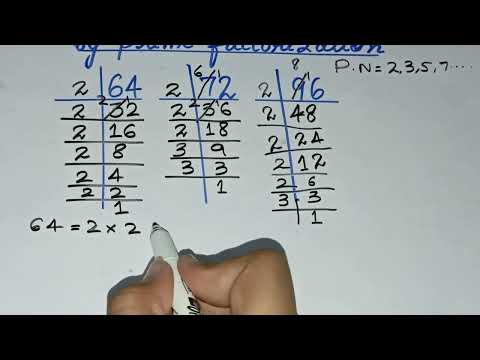 by prime factorization
P.N = 2,3,5,7....
2 64 2 72 2 96
2 32 2 36 2 48
2 16 2 18 2 24
2 8 3 9 2 12
2 4 3 3 2 6
2 2 1 3 3
1 1
64 = 2 × 2